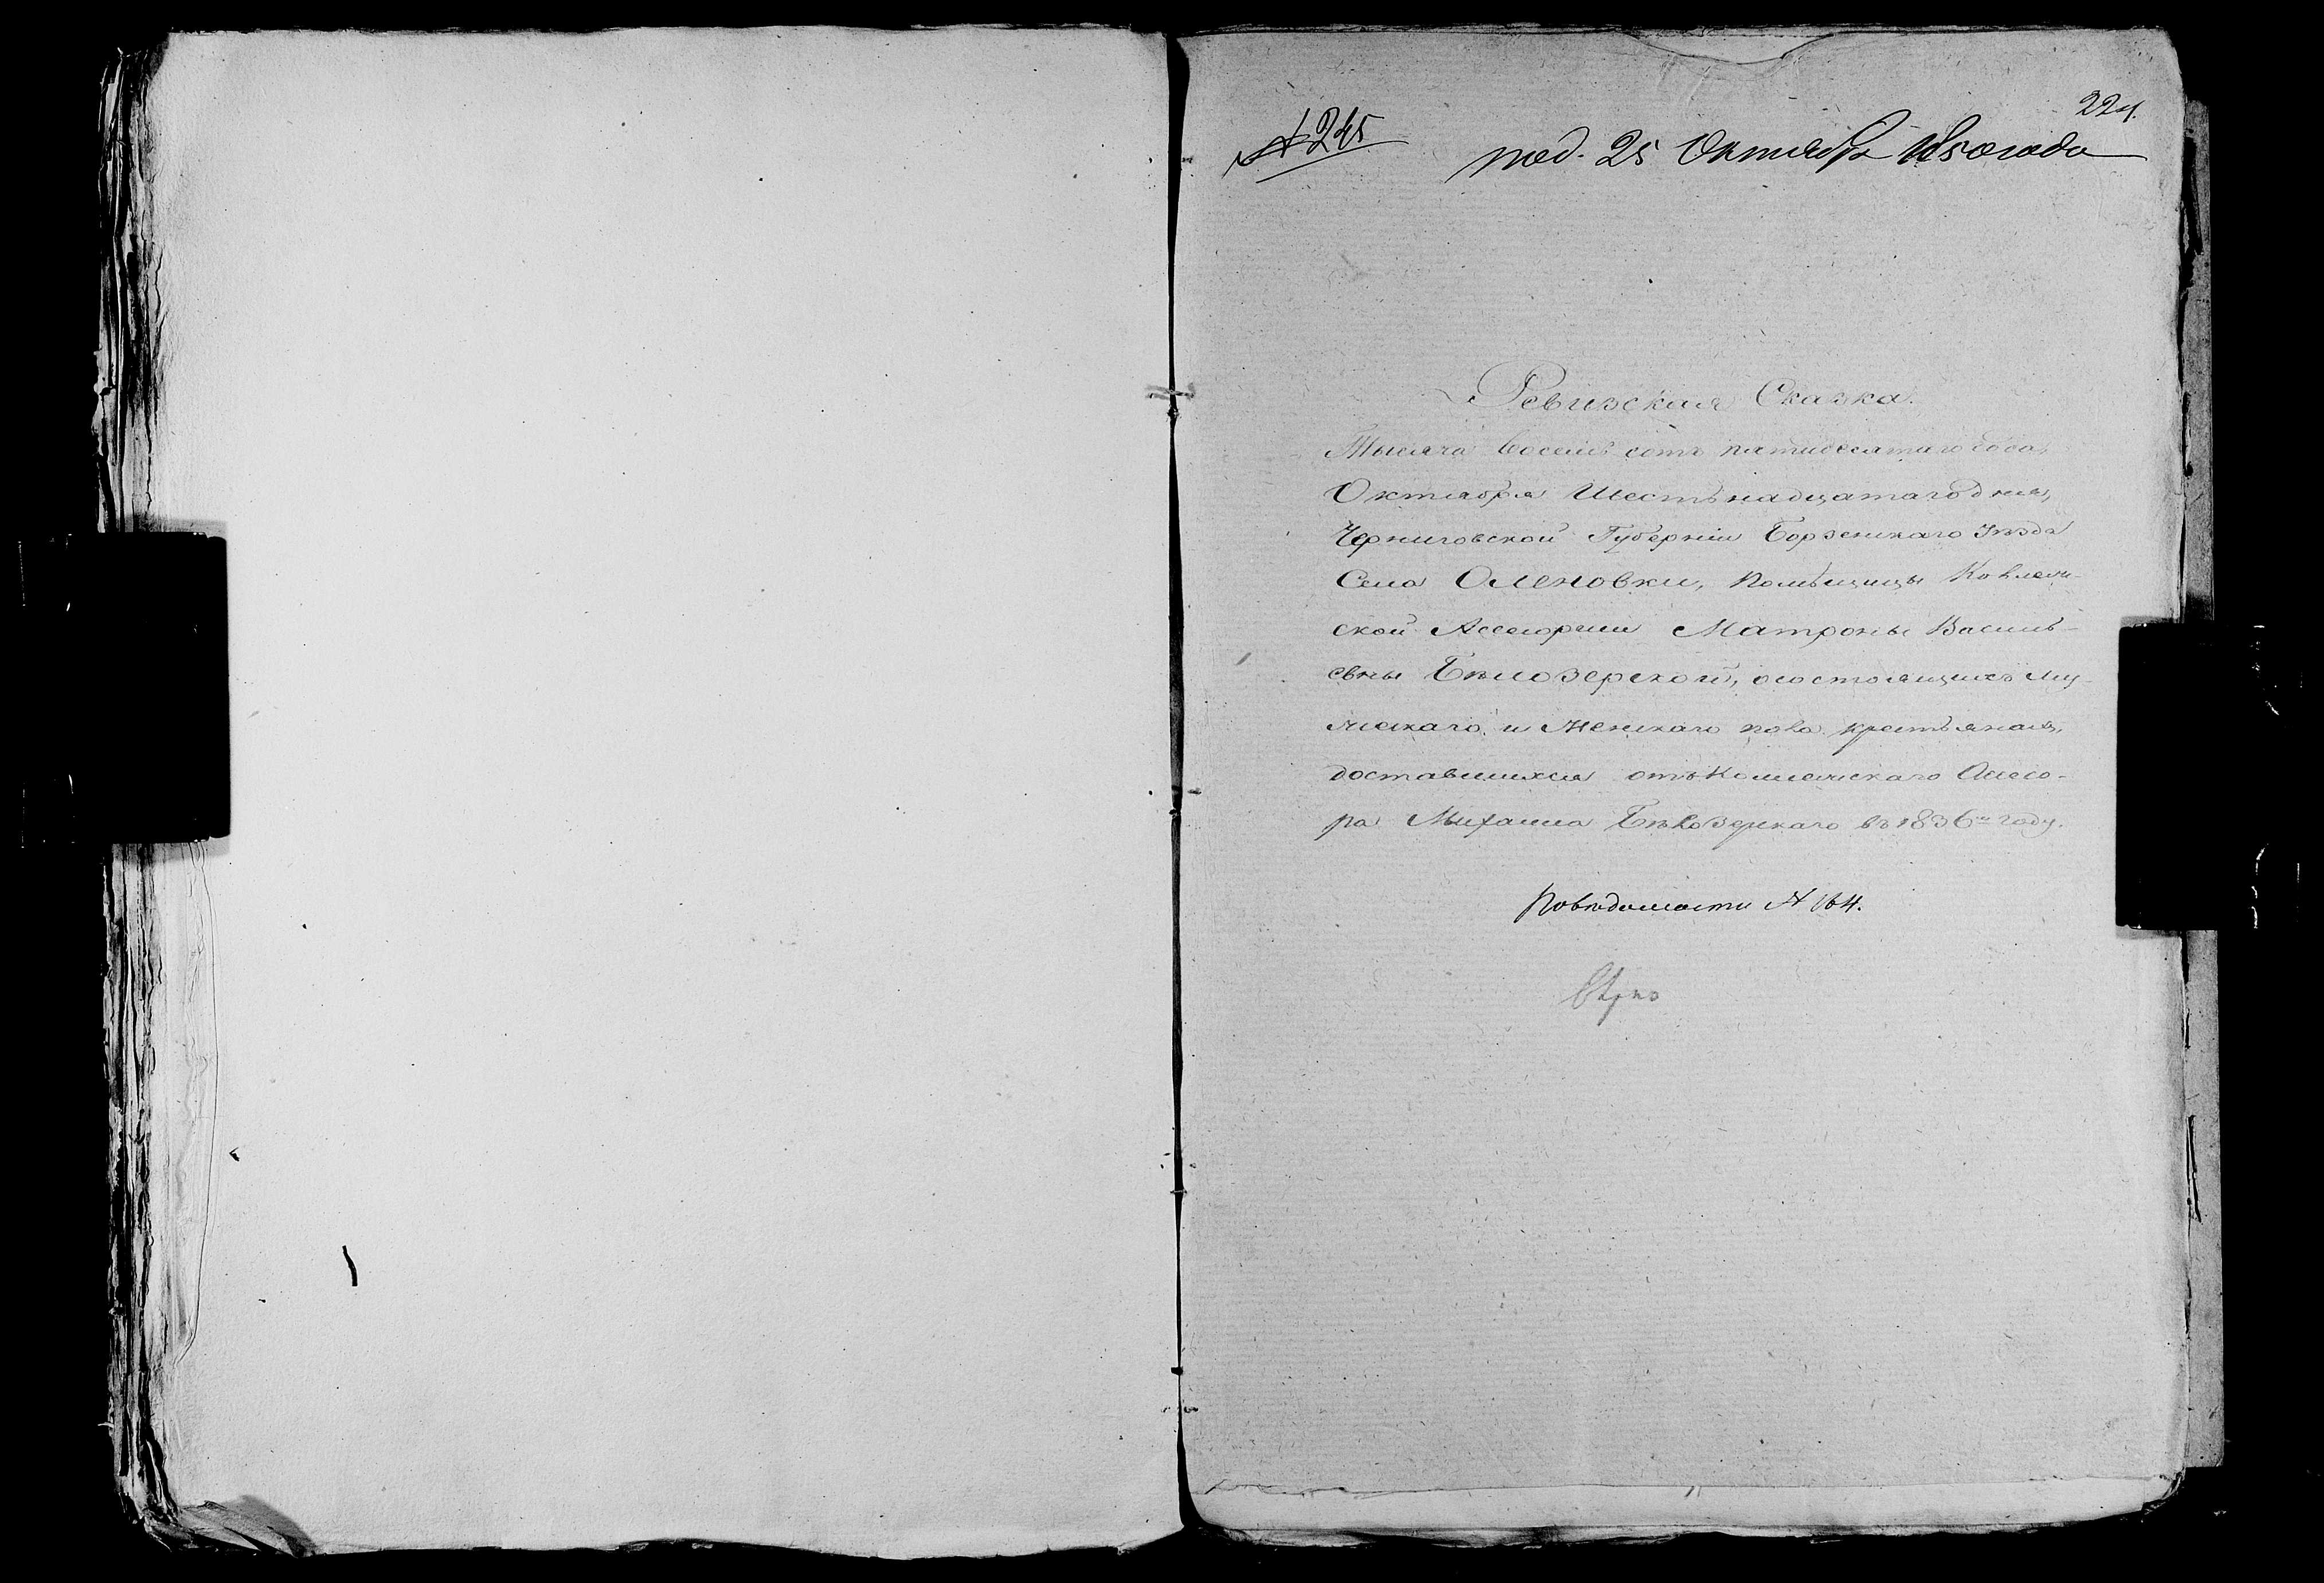 224.
№ 245
под. 25 Октября 1850 года
Ревизская Сказка.
Тысяча восемь сотъ пятидесятаго года,
Октября Шестьнадцатаго дня,
Черниговской Губерніи Борзенскаго Уѣзда
Села Оленовки, Помѣщицы Коллеж-
ской Ассесорши Матроны Василь-
евны Бѣлозерской, о состоящихъ му-
жескаго и женскаго пола крестьянахъ,
доставшихся отъ Коллежскаго Ассесо-
ра Михаила Бѣлозерскаго въ 1836м году.
По вѣдомости № 164.
Вѣрно